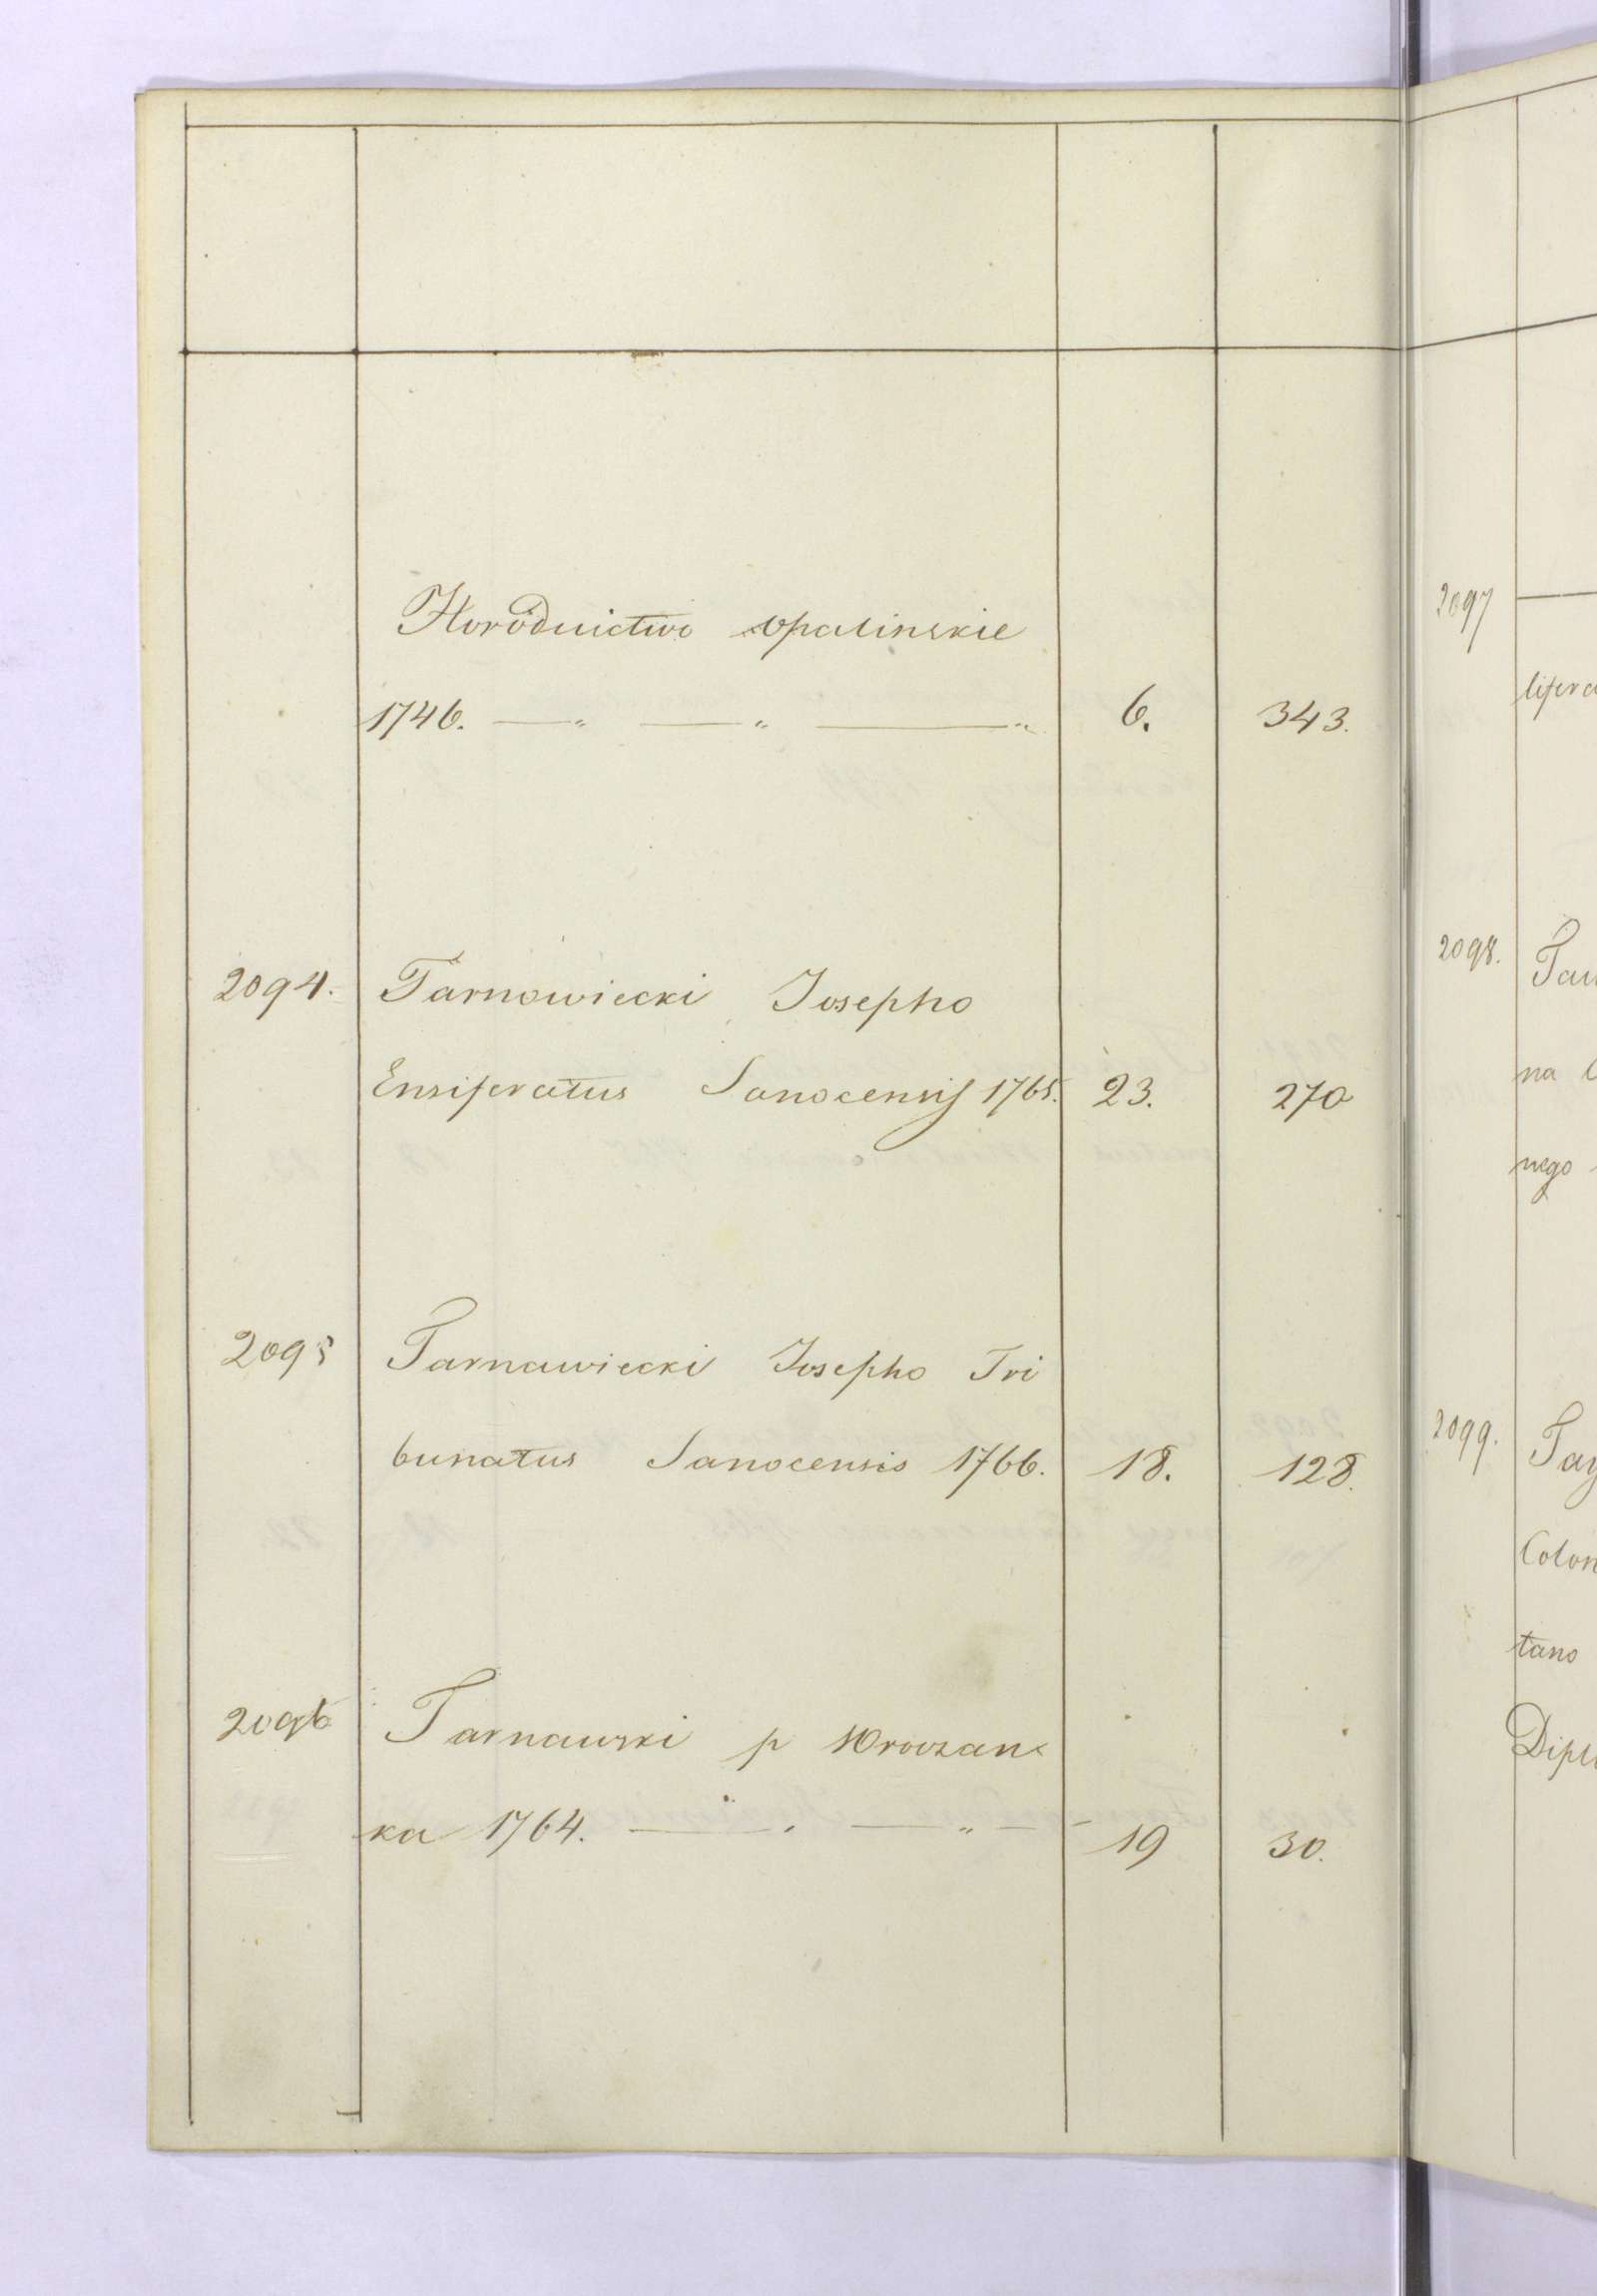 Horodnictwo opalinskie
1746. —„ —„ —„ 6. 343.
2094. Tarnowiecki Josepho
Ensiferatus Sanocensis 1765. 23. 270
2095 Tarnawiecki Josepho Tri
bunatus Sanocensis 1766. 18. 128.
2096 Tarnawski p
ka 1764. —„ —„— 19 30.
2097
2098. Tau
na
nego
2099. Tay
Colon
tano